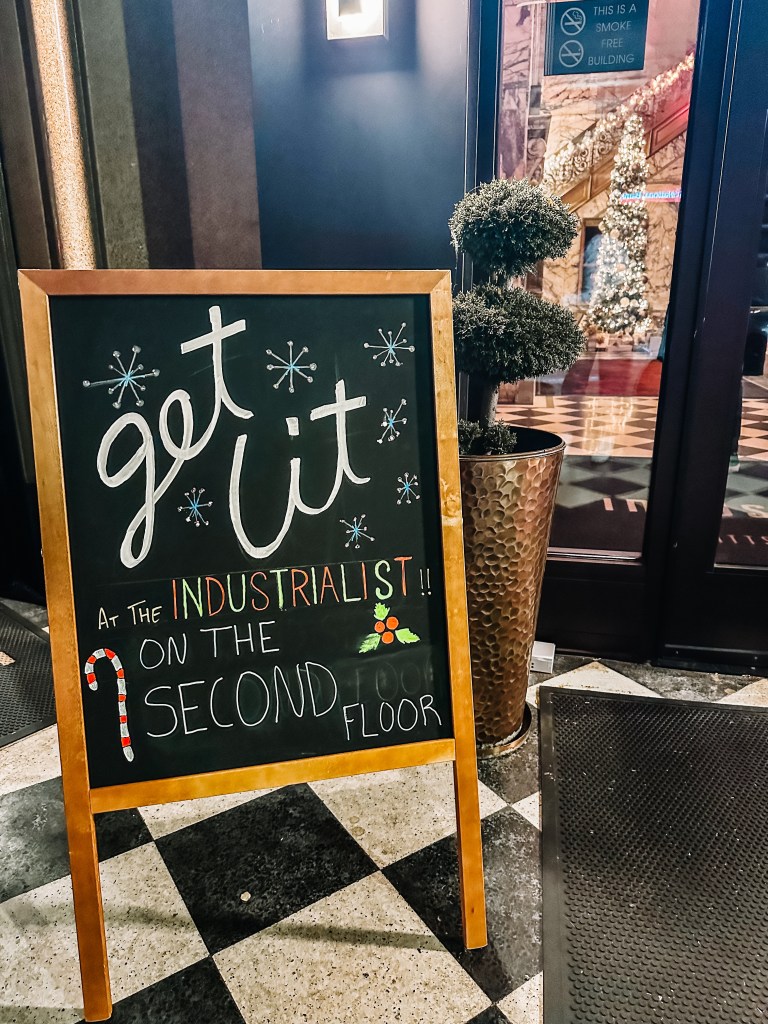 THIS IS A
SMOKE
FREE
BUILDING
get
Lit
AT THE INDUSTRIALIST!!
ON THE
SECOND
FLOOR